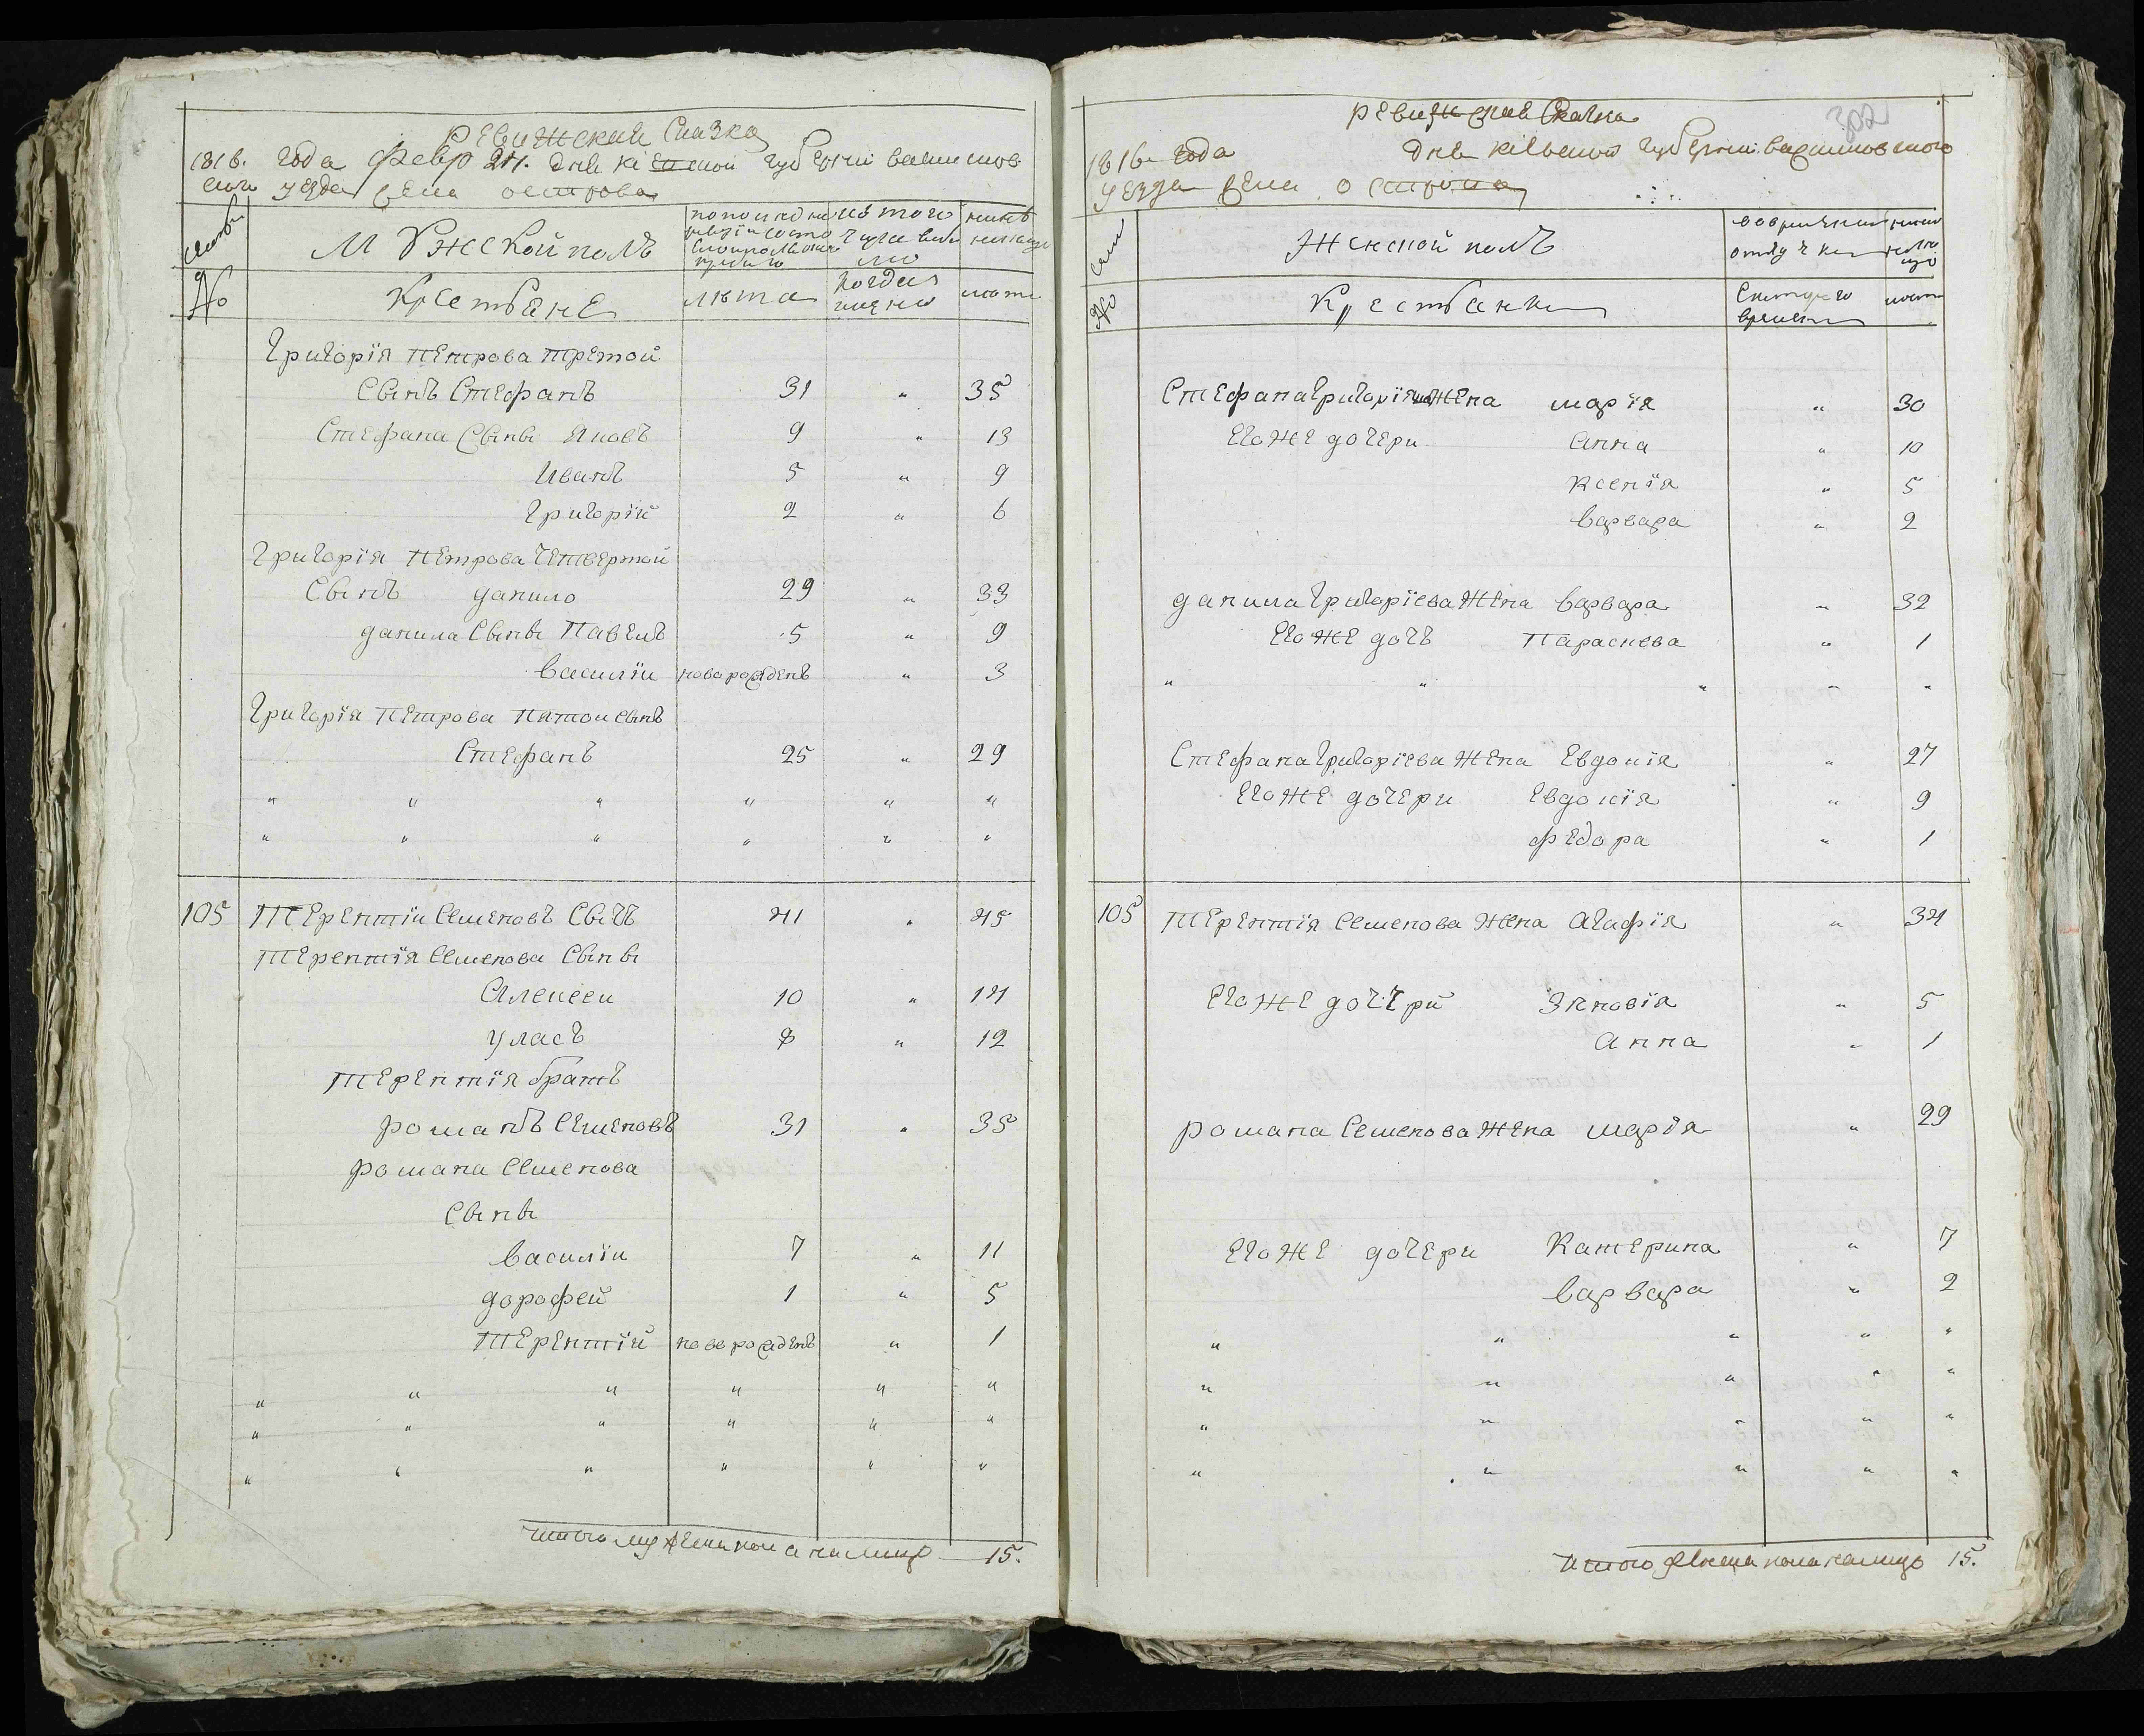 Ревижская Сказка
1816. года февр 24. дня Кіевской губерніи васильков
ского уезда села острова
семьи
Мужской полъ
по последней ревизіи состо
из того числа выбы
ло
ныне
на лицо
№
Крестьяне
лета
когда и
именно
лета
Григорія Петрова третой
Сынъ Стефанъ 31 „ 35
Стефана Сыны Яковъ 9 „ 13
Иванъ 5 „ 9
Григорій 2 „ 6
Григорія Петрова Четвертой
Сынъ данило 29 „ 33
данила Сыны Павелъ 5 „ 9
василіи новорожденъ „ 3
Григорія Петрова пятои сынъ
Стефанъ 25 „ 29
„ „ „ „ „ „
„ „ „ „ „ „
105 Терентіи Семеновъ Сычъ 41 „ 45
Терентія Семенова Сыны
Алексеи 10 „ 14
Уласъ 8 „ 12
Терентія братъ
романъ Семеновъ 31 „ 35
романа Семенова
Сыны
василіи 7 „ 11
дорофей 1 „ 5
Терентій новорожденъ „ 1
„ „ „ „ „ „
„ „ „ „ „ „
„ „ „ „ „ „
итого мужеска пола налицо 15.
302
Ревижская Сказка
1816 года дня Кіевской губерніи васильковского
уезда села острова
семьи
Женской полъ
во временной
отлучке
ныне
на ли
цо
№
Крестьянки
С которого
времени
лета
Стефана Григоріева жена марія „ 30
Егоже дочери Анна „ 10
Ксенія „ 5
варвара „ 2
данила Григоріева жена варвара „ 32
Егоже дочъ Параскева „ 1
„ „ „ „ „
Стефана Григоріева жена Евдокія „ 27
Егоже дочери Евдокія „ 9
федора „ 1
105 Терентія Семенова жена Агафія „ 34
Егоже дочери Зѣновія „ 5
Анна „ 1
романа Семенова жена марія „ 29
Егоже дочери Катерина „ 7
варвара „ 2
„ „ „ „ „
„ „ „ „ „
„ „ „ „ „
„ „ „ „ „
Итого женска пола налицо 15.